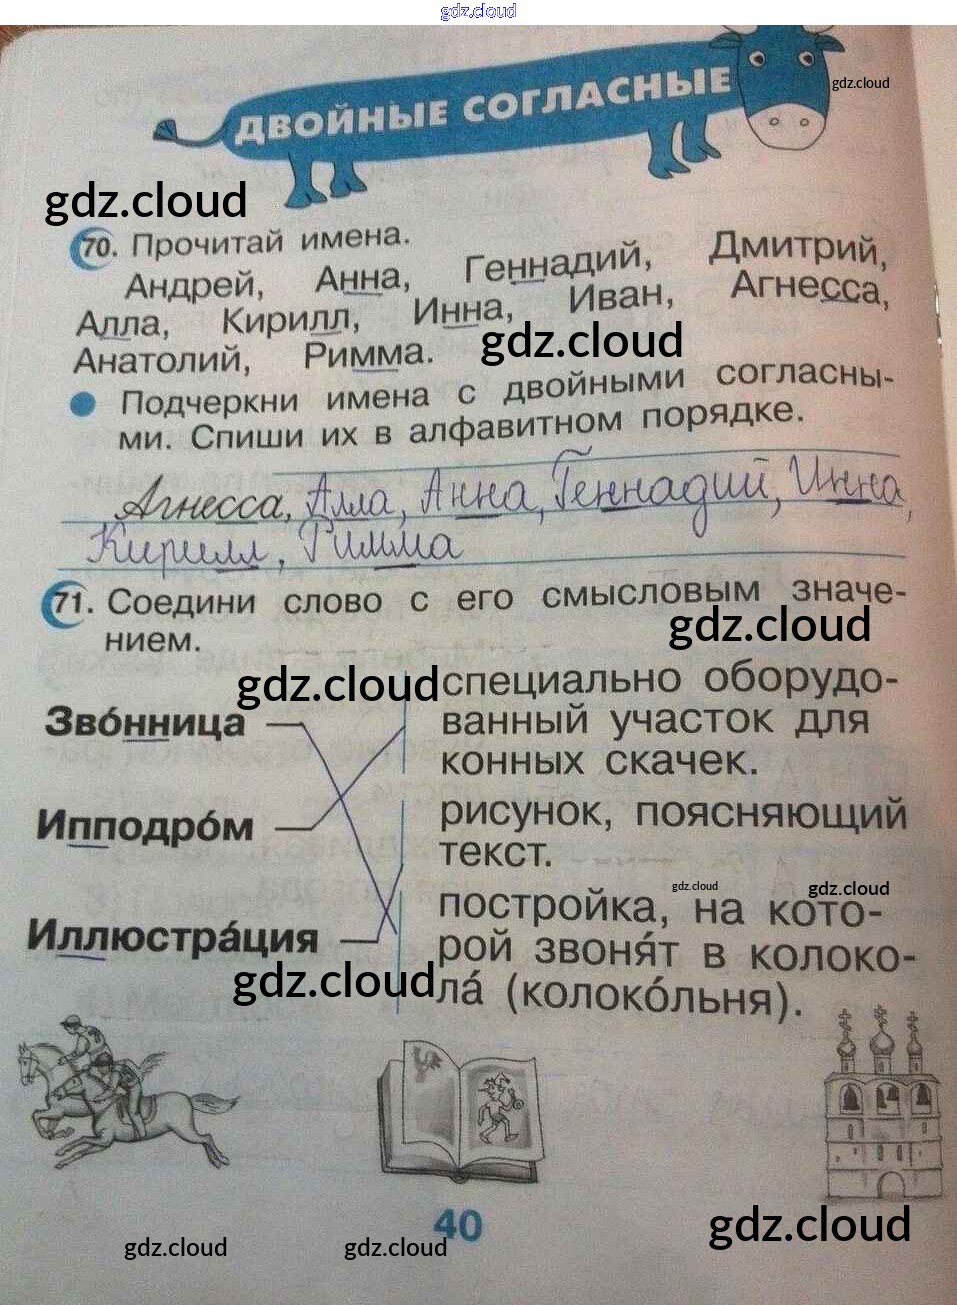 gdz.cloud
ДВОЙНЫЕ СОГЛАСНЫЕ
gdz.cloud
gdz.cloud
70. Прочитай имена.
Андрей, Анна, Геннадий, Дмитрий,
Алла, Кирилл, Инна, Иван, Агнесса,
Анатолий, Римма.
gdz.cloud
Подчеркни имена с двойными согласны-
ми. Спиши их в алфавитном порядке.
Агнесса, Алла, Анна, Геннадий, Инна,
Кирилл, Римма
71. Соедини слово с его смысловым значе-
нием.
gdz.cloud
gdz.cloud
Зво́нница
специально оборудо-
ванный участок для
конных скачек.
Ипподро́м
рисунок, поясняющий
текст.
gdz.cloud
gdz.cloud
Иллюстра́ция
постройка, на кото-
рой звоня́т в колоко-
ла́ (колоко́льня).
gdz.cloud
40
gdz.cloud
gdz.cloud
gdz.cloud